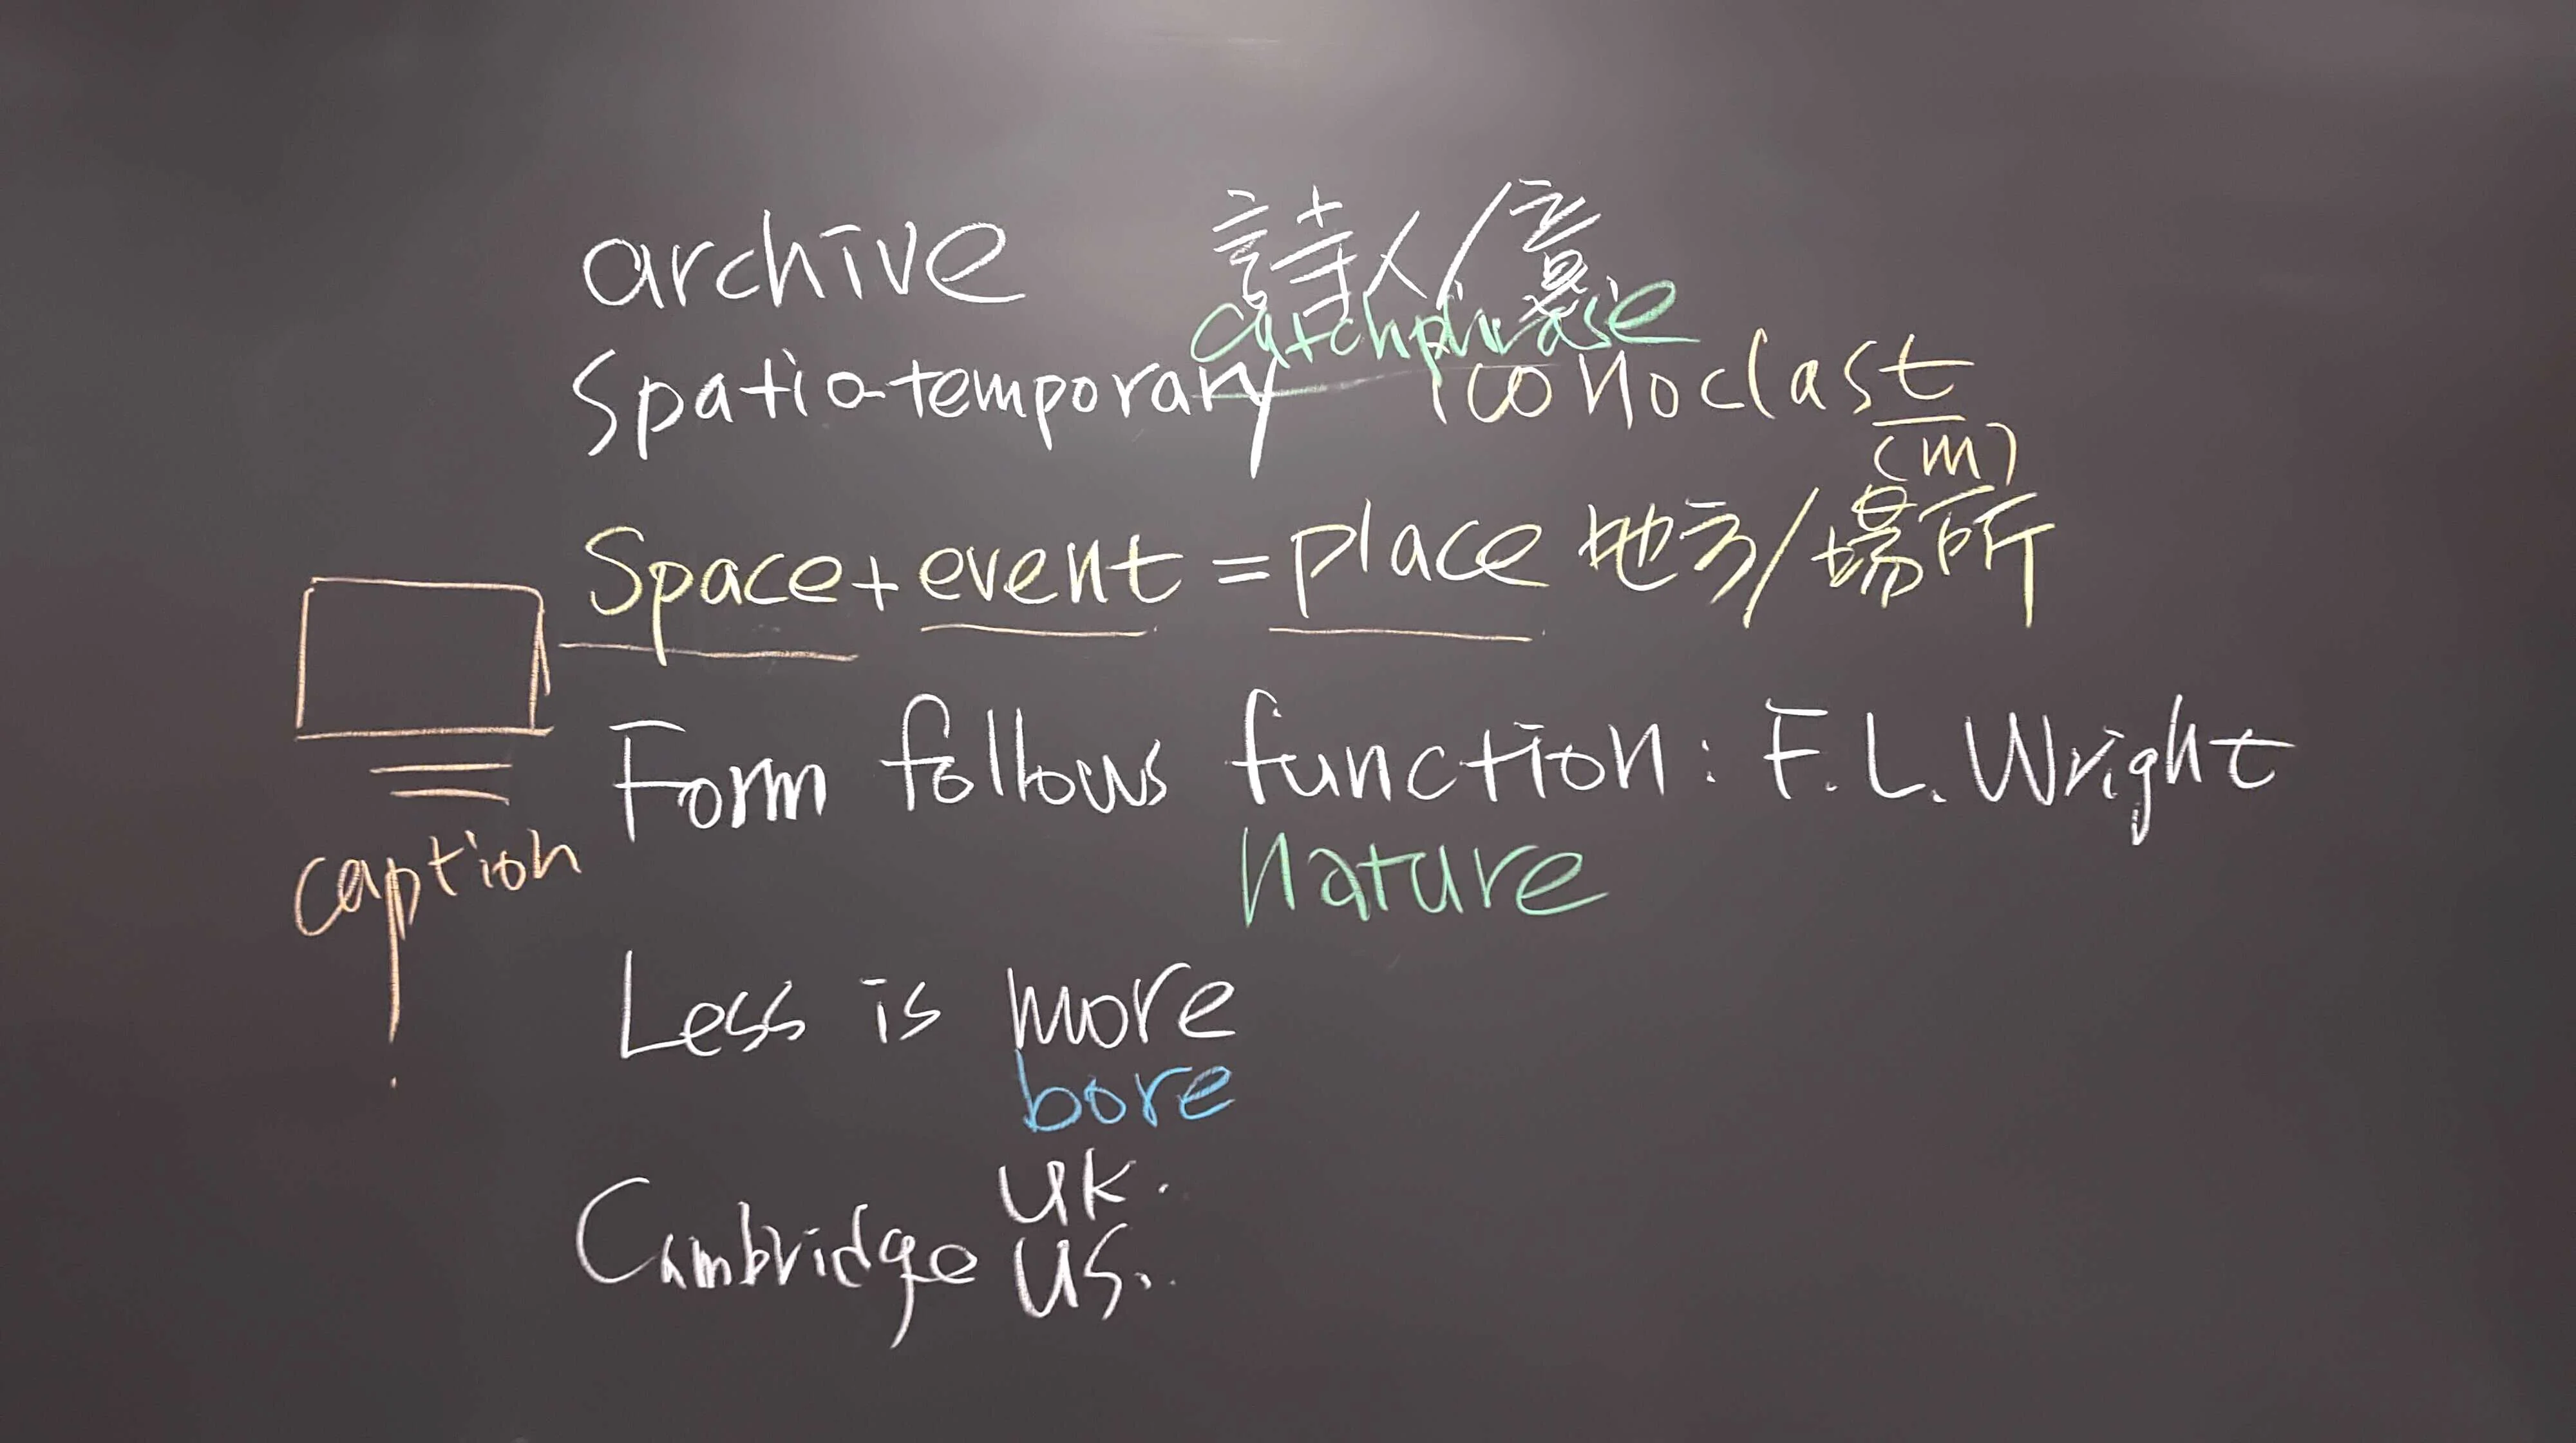 archive 詩人/意
catchphrase
Spatio-temporary iconoclast
(m)
Space + event = place 地方/場所
Form follows function : F. L. Wright
nature
caption
Less is more
bore
UK.
Cambridge US.